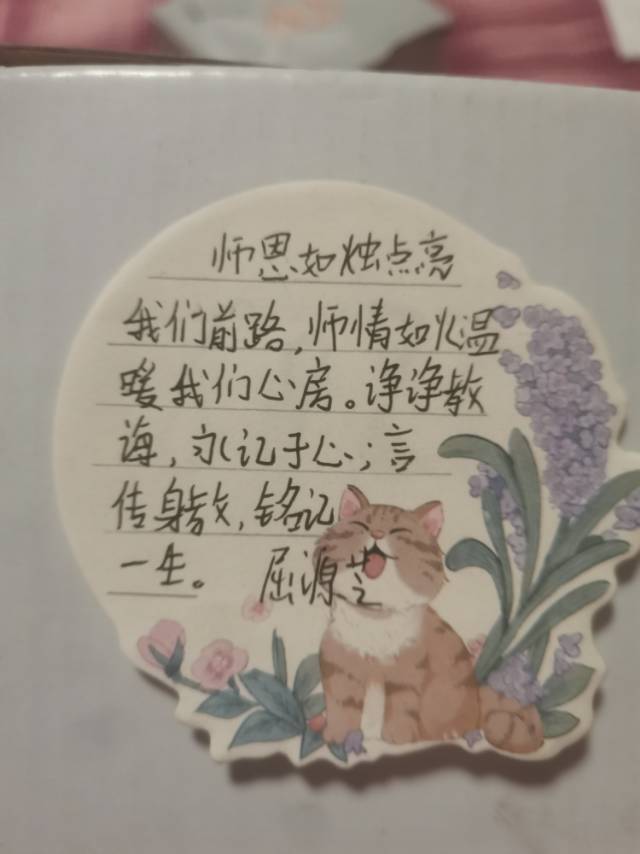 师恩如烛点亮
我们前路,师情如火温
暖我们心房。诤诤教
诲,永记于心;言
传身教,铭记
一生。 屈源芝